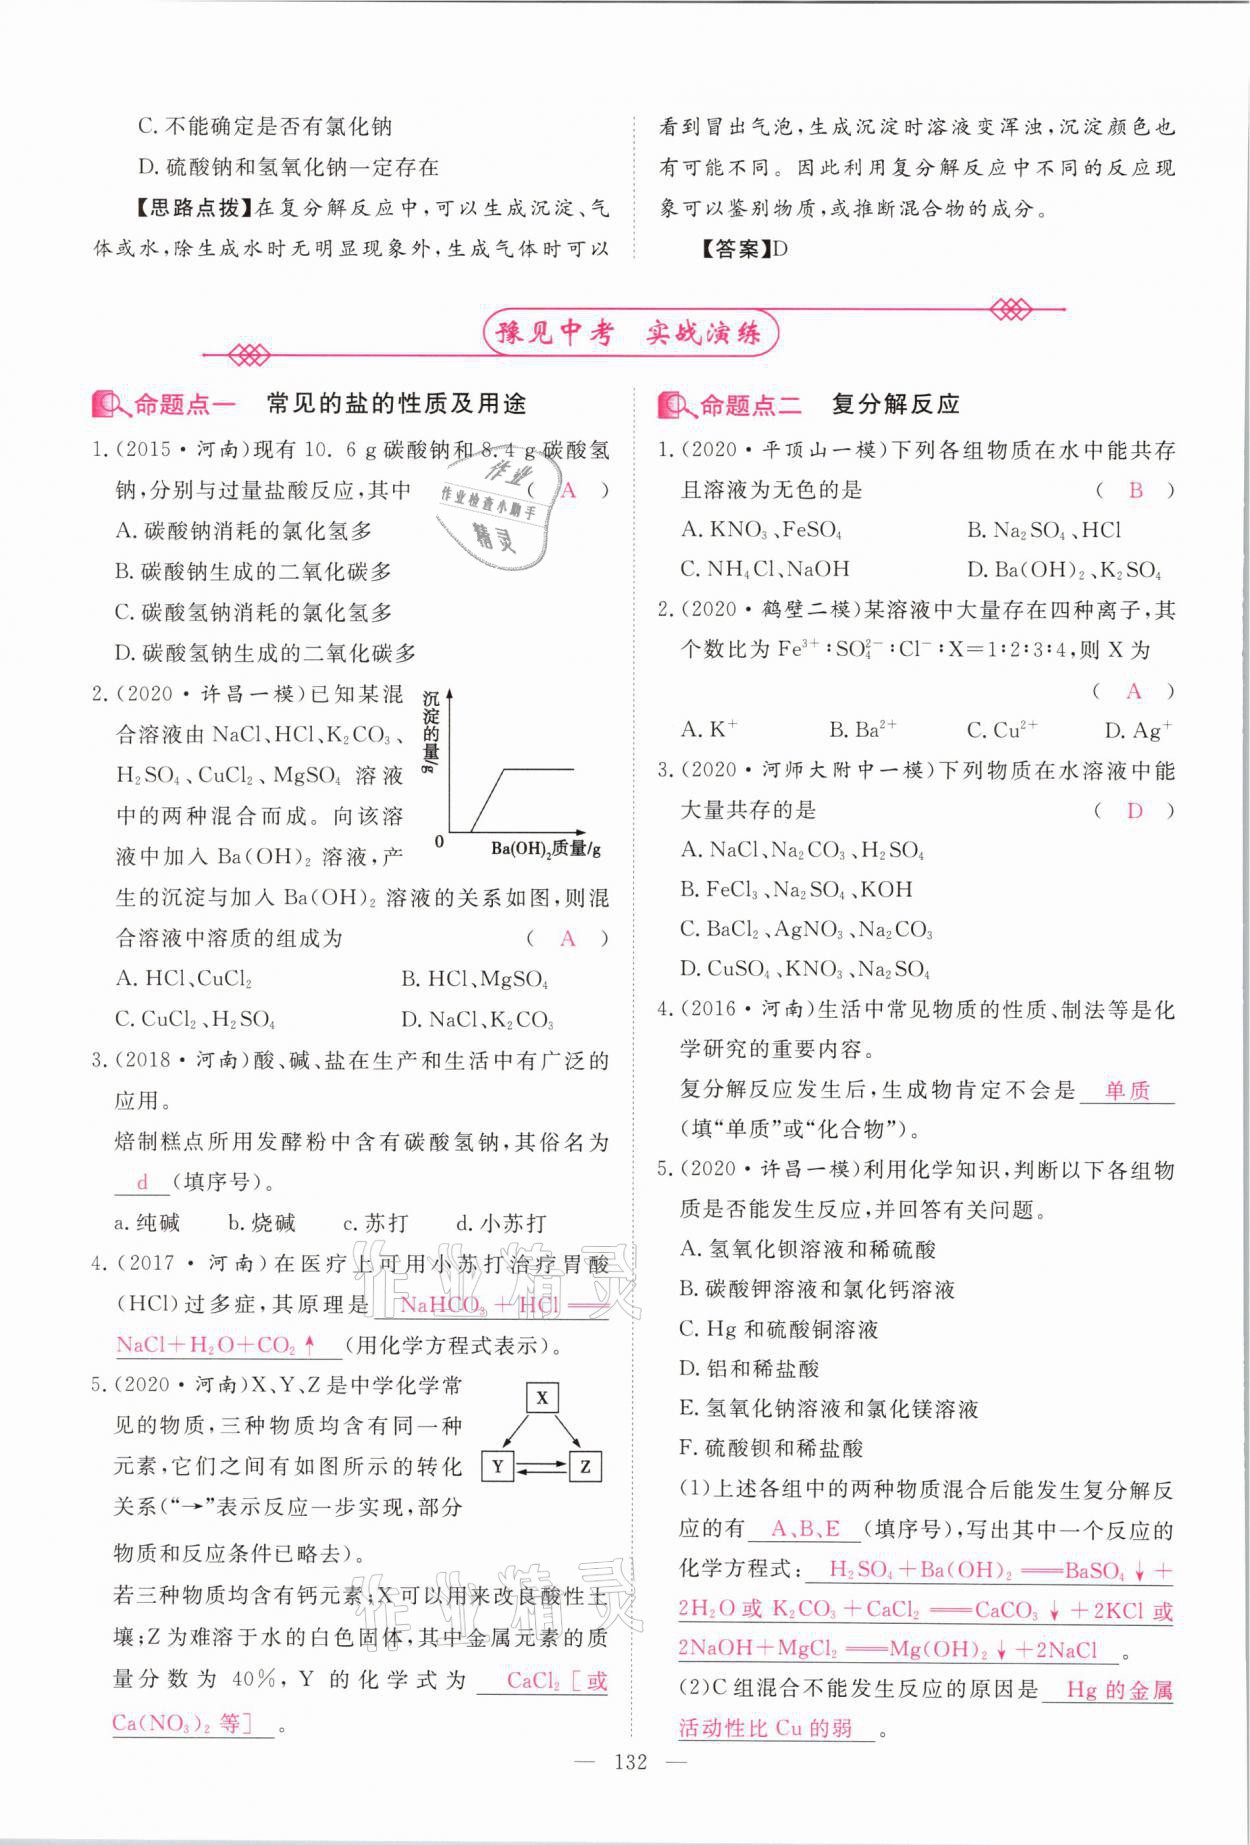 C. 不能确定是否有氯化钠
D. 硫酸钠和氢氧化钠一定存在
【思路点拨】在复分解反应中,可以生成沉淀、气
体或水,除生成水时无明显现象外,生成气体时可以
看到冒出气泡,生成沉淀时溶液变浑浊,沉淀颜色也
有可能不同。因此利用复分解反应中不同的反应现
象可以鉴别物质,或推断混合物的成分。
【答案】D
豫见中考 实战演练
命题点一 常见的盐的性质及用途
1. (2015·河南)现有 10. 6 g 碳酸钠和 8. 4 g 碳酸氢
钠,分别与过量盐酸反应,其中 ( A )
A. 碳酸钠消耗的氯化氢多
B. 碳酸钠生成的二氧化碳多
C. 碳酸氢钠消耗的氯化氢多
D. 碳酸氢钠生成的二氧化碳多
2. (2020·许昌一模)已知某混
合溶液由 NaCl、HCl、K₂CO₃、
H₂SO₄、CuCl₂、MgSO₄ 溶液
中的两种混合而成。向该溶
液中加入 Ba(OH)₂ 溶液,产
生的沉淀与加入 Ba(OH)₂ 溶液的关系如图,则混
合溶液中溶质的组成为 ( A )
沉淀的量/g
0
Ba(OH)₂质量/g
A. HCl、CuCl₂ B. HCl、MgSO₄
C. CuCl₂、H₂SO₄ D. NaCl、K₂CO₃
3. (2018·河南)酸、碱、盐在生产和生活中有广泛的
应用。
焙制糕点所用发酵粉中含有碳酸氢钠,其俗名为
d (填序号)。
a. 纯碱 b. 烧碱 c. 苏打 d. 小苏打
4. (2017·河南)在医疗上可用小苏打治疗胃酸
(HCl)过多症,其原理是 NaHCO₃+HCl══
NaCl+H₂O+CO₂↑ (用化学方程式表示)。
5. (2020·河南)X、Y、Z是中学化学常
见的物质,三种物质均含有同一种
元素,它们之间有如图所示的转化
关系(“→”表示反应一步实现,部分
物质和反应条件已略去)。
X
Y
Z
若三种物质均含有钙元素;X可以用来改良酸性土
壤;Z为难溶于水的白色固体,其中金属元素的质
量分数为 40%,Y 的化学式为 CaCl₂[或
Ca(NO₃)₂等] 。
命题点二 复分解反应
1. (2020·平顶山一模)下列各组物质在水中能共存
且溶液为无色的是 ( B )
A. KNO₃、FeSO₄ B. Na₂SO₄、HCl
C. NH₄Cl、NaOH D. Ba(OH)₂、K₂SO₄
2. (2020·鹤壁二模)某溶液中大量存在四种离子,其
个数比为 Fe³⁺∶SO₄²⁻∶Cl⁻∶X=1∶2∶3∶4,则 X 为
( A )
A. K⁺ B. Ba²⁺ C. Cu²⁺ D. Ag⁺
3. (2020·河师大附中一模)下列物质在水溶液中能
大量共存的是 ( D )
A. NaCl、Na₂CO₃、H₂SO₄
B. FeCl₃、Na₂SO₄、KOH
C. BaCl₂、AgNO₃、Na₂CO₃
D. CuSO₄、KNO₃、Na₂SO₄
4. (2016·河南)生活中常见物质的性质、制法等是化
学研究的重要内容。
复分解反应发生后,生成物肯定不会是 单质
(填“单质”或“化合物”)。
5. (2020·许昌一模)利用化学知识,判断以下各组物
质是否能发生反应,并回答有关问题。
A. 氢氧化钡溶液和稀硫酸
B. 碳酸钾溶液和氯化钙溶液
C. Hg 和硫酸铜溶液
D. 铝和稀盐酸
E. 氢氧化钠溶液和氯化镁溶液
F. 硫酸钡和稀盐酸
(1)上述各组中的两种物质混合后能发生复分解反
应的有 A、B、E (填序号),写出其中一个反应的
化学方程式: H₂SO₄+Ba(OH)₂══BaSO₄↓+
2H₂O 或 K₂CO₃+CaCl₂══CaCO₃↓+2KCl 或
2NaOH+MgCl₂══Mg(OH)₂↓+2NaCl 。
(2)C 组混合不能发生反应的原因是 Hg 的金属
活动性比 Cu 的弱 。
— 132 —
作业
作业检查小助手
精灵
作业精灵
作业精灵